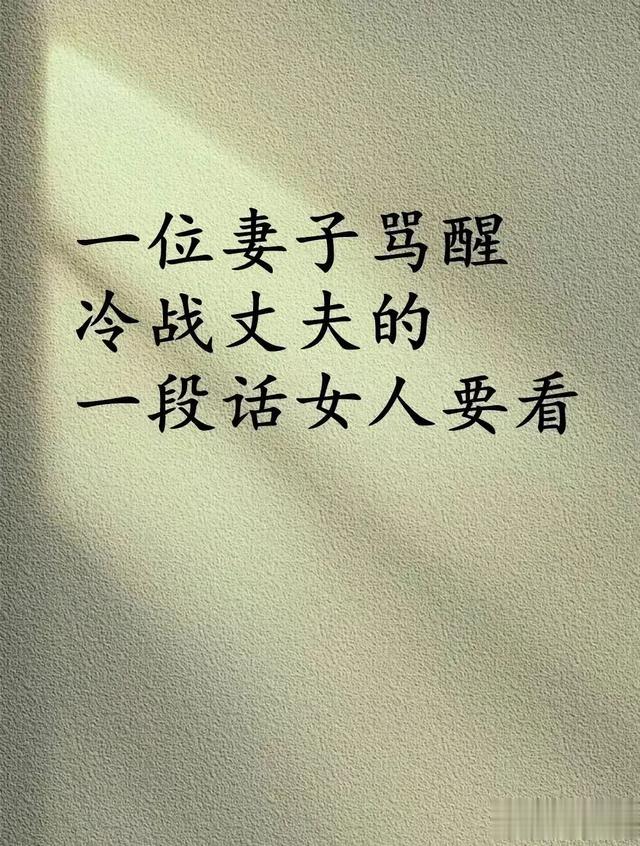 一位妻子骂醒
冷战丈夫的
一段话女人要看